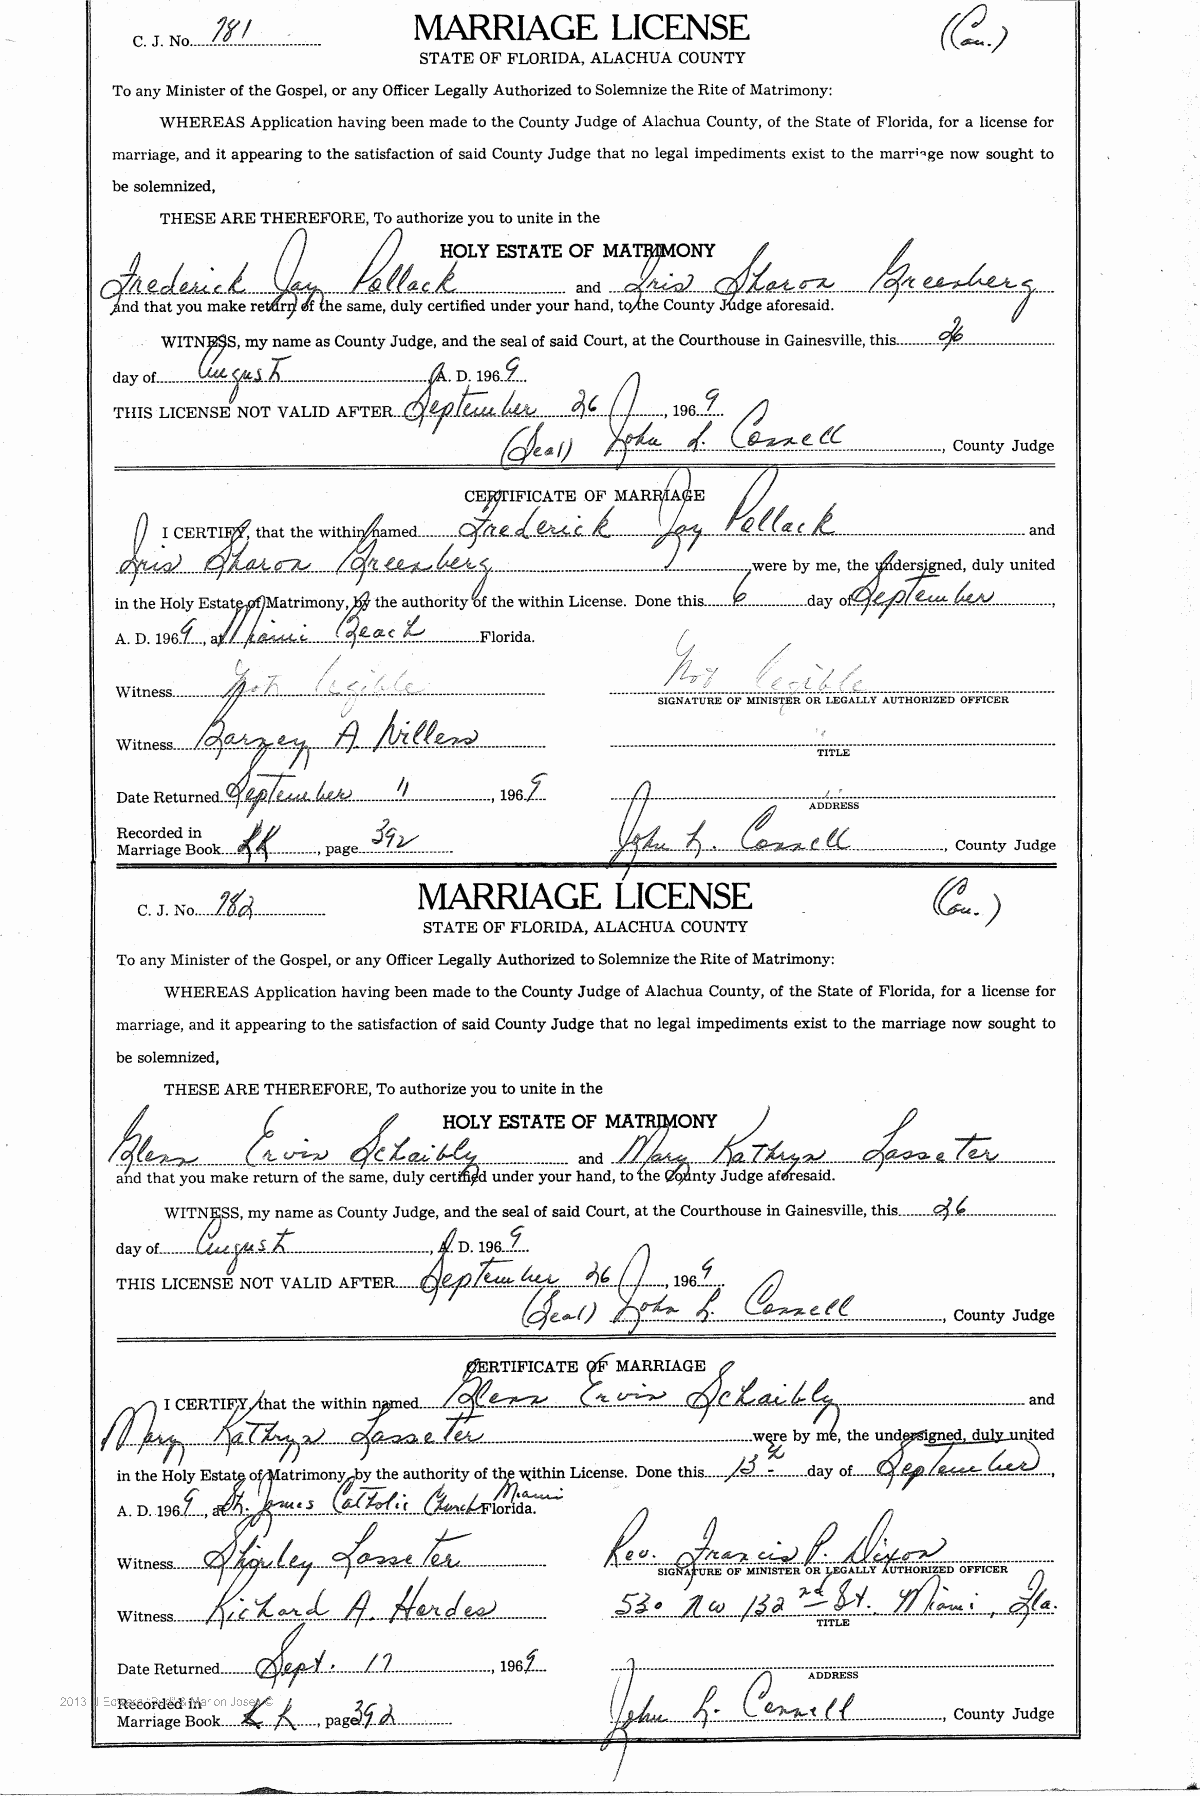 C. J. No. 981 MARRIAGE LICENSE (Cau.)
STATE OF FLORIDA, ALACHUA COUNTY
To any Minister of the Gospel, or any Officer Legally Authorized to Solemnize the Rite of Matrimony:
WHEREAS Application having been made to the County Judge of Alachua County, of the State of Florida, for a license for
marriage, and it appearing to the satisfaction of said County Judge that no legal impediments exist to the marriage now sought to
be solemnized,
THESE ARE THEREFORE, To authorize you to unite in the
HOLY ESTATE OF MATRIMONY
Frederick Jay Pollack and Iris Sharon Greenberg
and that you make return of the same, duly certified under your hand, to the County Judge aforesaid.
WITNESS, my name as County Judge, and the seal of said Court, at the Courthouse in Gainesville, this 26
day of August A. D. 1969
THIS LICENSE NOT VALID AFTER September 26, 1969
(Seal) John L. Connell, County Judge
CERTIFICATE OF MARRIAGE
I CERTIFY, that the within named Frederick Jay Pollack and
Iris Sharon Greenberg were by me, the undersigned, duly united
in the Holy Estate of Matrimony, by the authority of the within License. Done this 6 day of September,
A. D. 1969, at Miami Beach Florida.
Witness Not legible Not legible
SIGNATURE OF MINISTER OR LEGALLY AUTHORIZED OFFICER
Witness Barney A. Willens
TITLE
Date Returned September 11, 1969
ADDRESS
Recorded in
Marriage Book KK, page 392 John L. Connell, County Judge
C. J. No. 982 MARRIAGE LICENSE (Cau.)
STATE OF FLORIDA, ALACHUA COUNTY
To any Minister of the Gospel, or any Officer Legally Authorized to Solemnize the Rite of Matrimony:
WHEREAS Application having been made to the County Judge of Alachua County, of the State of Florida, for a license for
marriage, and it appearing to the satisfaction of said County Judge that no legal impediments exist to the marriage now sought to
be solemnized,
THESE ARE THEREFORE, To authorize you to unite in the
HOLY ESTATE OF MATRIMONY
Glenn Ervin Schaibly and Mary Kathryn Lasseter
and that you make return of the same, duly certified under your hand, to the County Judge aforesaid.
WITNESS, my name as County Judge, and the seal of said Court, at the Courthouse in Gainesville, this 26
day of August, A. D. 1969
THIS LICENSE NOT VALID AFTER September 26, 1969
(Seal) John L. Connell, County Judge
CERTIFICATE OF MARRIAGE
I CERTIFY, that the within named Glenn Ervin Schaibly and
Mary Kathryn Lasseter were by me, the undersigned, duly united
in the Holy Estate of Matrimony, by the authority of the within License. Done this 13th day of September,
A. D. 1969, at St. James Catholic Church Miami Florida.
Witness Shirley Lasseter Rev. Francis P. Dixon
SIGNATURE OF MINISTER OR LEGALLY AUTHORIZED OFFICER
Witness Richard A. Hordes 530 NW 132nd St. Miami, Fla.
TITLE
Date Returned Sept. 17, 1969
ADDRESS
2013
Recorded in
Marriage Book KK, page 392 John L. Connell, County Judge